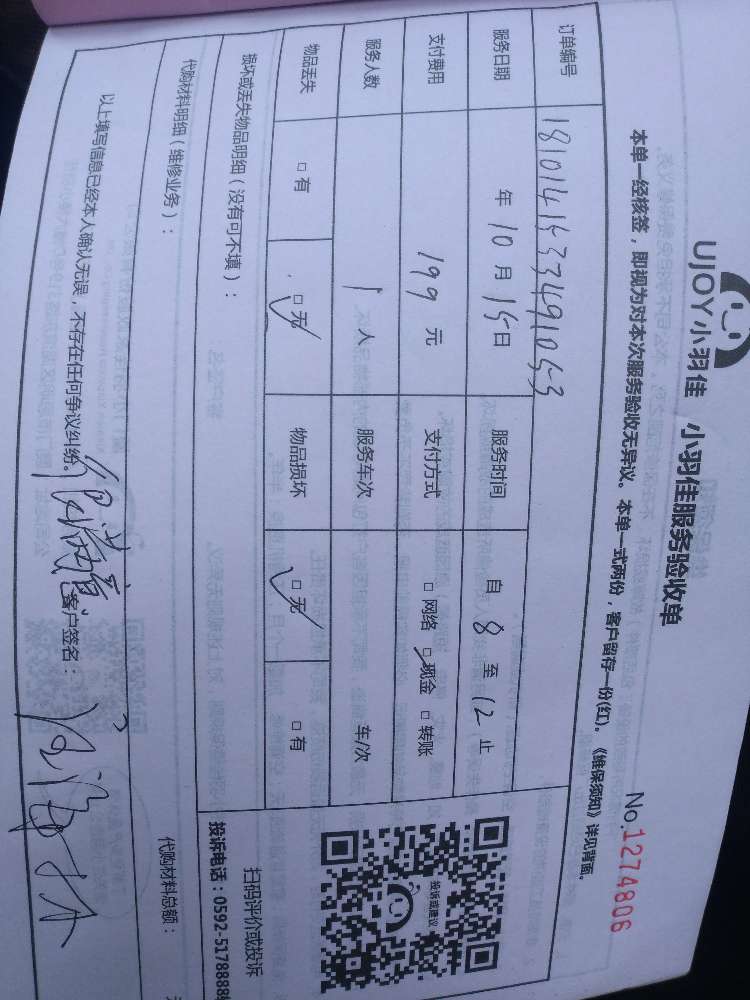 UJOY小羽佳 小羽佳服务验收单
No.1274806
本单一经核签，即视为对本次服务验收无异议。本单一式两份，客户留存一份(红)。《维保须知》详见背面。
订单编号 18101415334910553
服务日期 年 10 月 15 日 服务时间 自 8 至 12 止
支付费用 199 元 支付方式 □ 网络 □ 现金 □ 转账
服务人数 1 人 服务车次 车/次
物品丢失 □ 有 □ 无 物品损坏 □ 无 □ 有
投诉或建议
扫码评价或投诉
投诉电话：0592-5178888
损坏或丢失物品明细（没有可不填）：
代购材料明细（维修业务）：
代购材料总额：
以上填写信息已经本人确认无误，不存在任何争议纠纷。
客户签名：